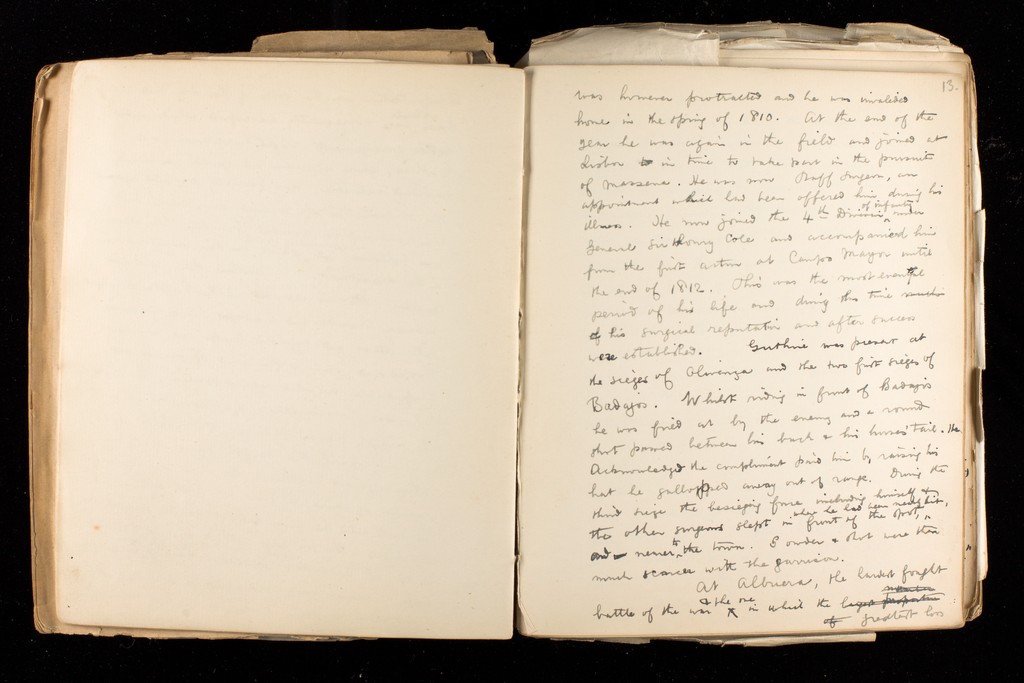 13.
was however protracted and he was invalided
home in the spring of 1810. At the end of the
year he was again in the field and joined at
Lisbon to in time to take part in the pursuit
of Massena. He was now Staff Surgeon, an
appointment which had been offered him during his
illness. He now joined the 4th Division of infantry, under
General Sir Henry Cole and accompanied him
from the first action at Campo Mayor until
the end of 1812. This was the most eventful
period of his life and during this time
of his surgical reputation and after success
were established. Guthrie was present at
the sieges of Olivenza and the two first sieges of
Badajos. Whilst riding in front of Badajos
he was fired at by the enemy and a round
shot passed between his back & his horses' tail. He
Acknowledged the compliment paid him by raising his
hat he gallopped away out of range. During the
third siege the besieging force including himself &
the other surgeons slept in front of the spot, where he had been nearly hit,
and nearer to the town. Powder & shot were then
much scarcer with the garrison.
At Albuera, the hardest fought
battle of the war & the one in which the largest proportion
of greatest loss